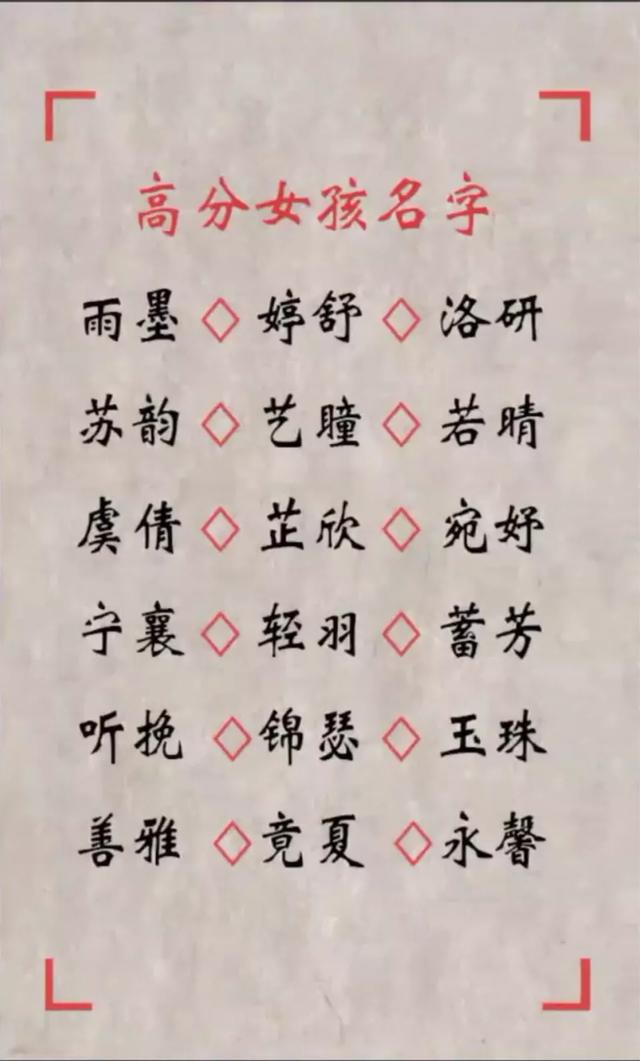 高分女孩名字
雨墨◇婷舒◇洛研
苏韵◇艺瞳◇若晴
虞倩◇芷欣◇宛妤
宁襄◇轻羽◇蓄芳
听挽◇锦瑟◇玉珠
善雅◇竟夏◇永馨